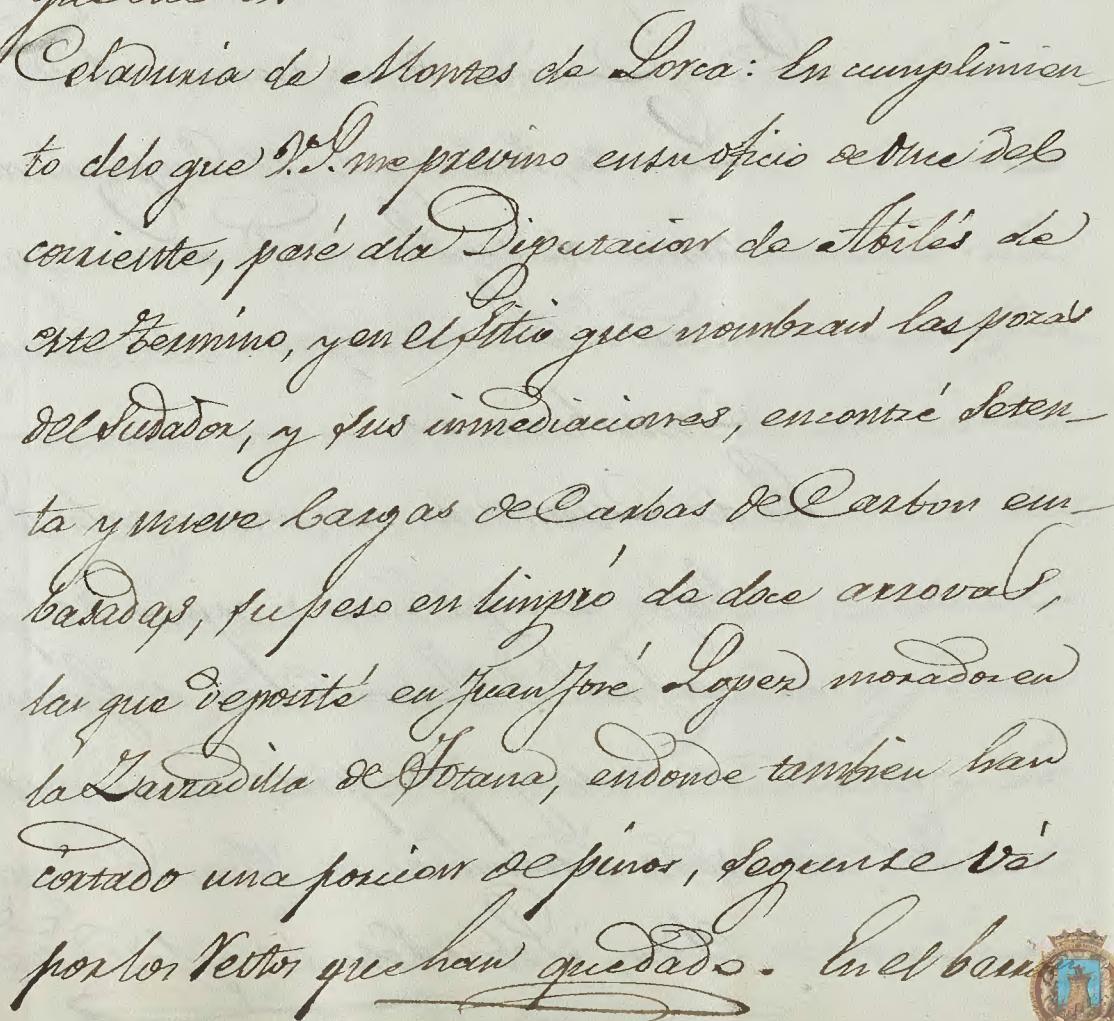 Celaduria de Montes de Lorca: En cumplimien
to delo que V.S. me previno ensu oficio de Once del
corriente, pasé ala Diputacion de Abilés de
este Termino, y en el sitio que nombran las pozas
del Sudador, y sus inmediaciones, encontré Seten-
ta y nueve Cargas de Carbas de Carbon em-
basadas, su peso en limpio de doce arrovas,
las que deposité en Juan José Lopez morador en
la Zarzadilla de Totana, endonde tambien han
cortado una porcion de pinos, segun se vé
por los Restos que han quedado. En el